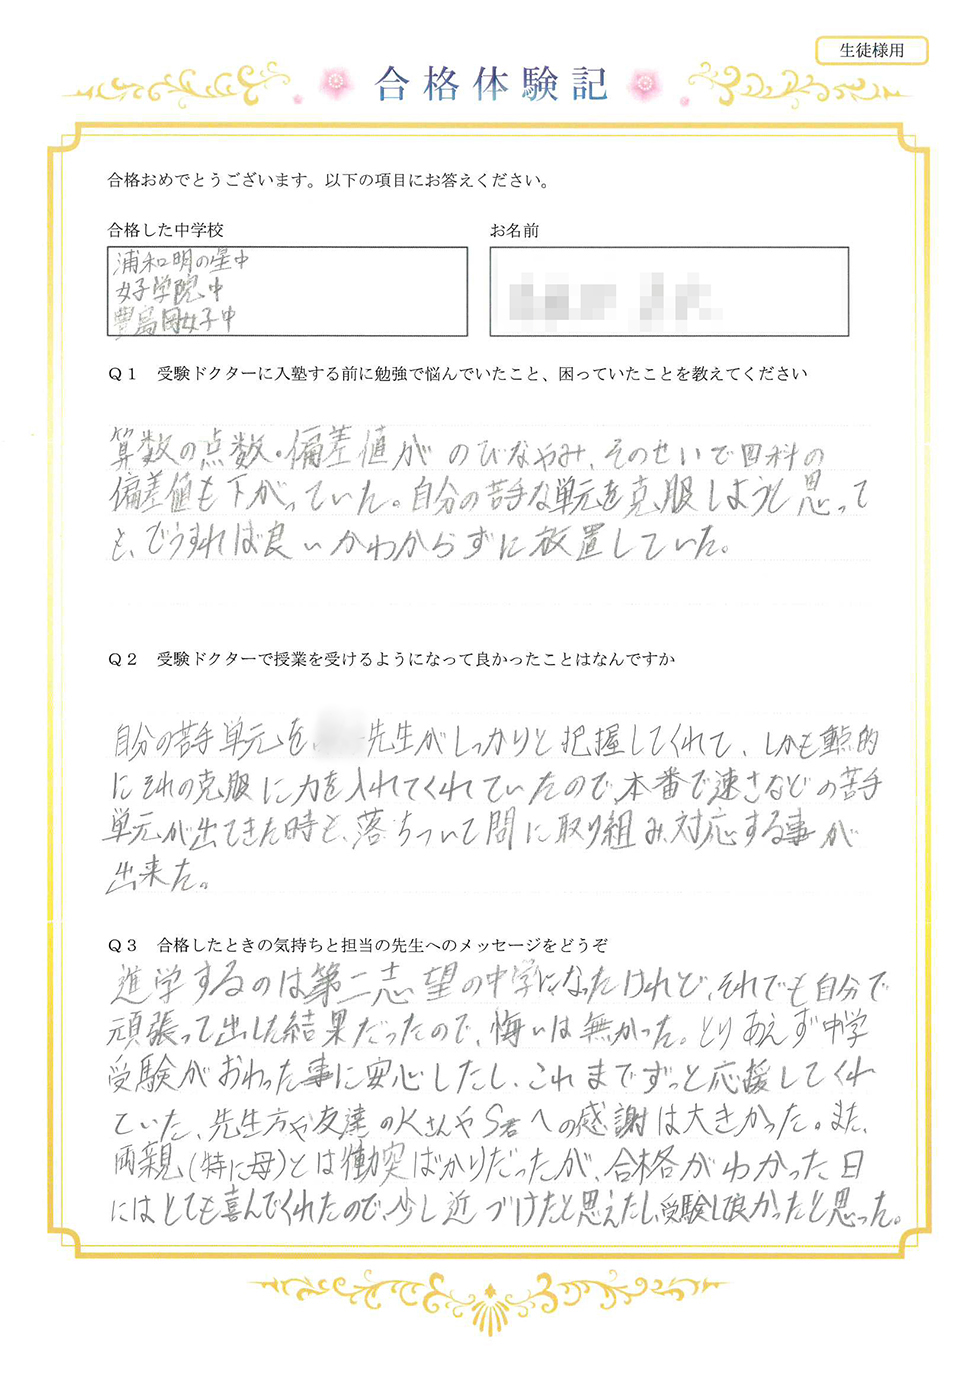 生徒様用
合格体験記
合格おめでとうございます。以下の項目にお答えください。
合格した中学校
お名前
浦和明の星中
女子学院中
豊島岡女子中
Q1 受験ドクターに入塾する前に勉強で悩んでいたこと、困っていたことを教えてください
算数の点数・偏差値がのびなやみ、そのせいで四科の
偏差値も下がっていた。自分の苦手な単元を克服しようと思って
も、どうすれば良いかわからずに放置していた。
Q2 受験ドクターで授業を受けるようになって良かったことはなんですか
自分の苦手単元を、先生がしっかりと把握してくれて、しかも重点的
にそれの克服に力を入れてくれていたので、本番で速さなどの苦手
単元が出てきた時も、落ちついて問に取り組み、対応する事が
出来た。
Q3 合格したときの気持ちと担当の先生へのメッセージをどうぞ
進学するのは第二志望の中学になったけれど、それでも自分で
頑張って出した結果だったので、悔いは無かった。とりあえず中学
受験がおわった事に安心したし、これまでずっと応援してくれ
ていた、先生方や友達のKさんやS君への感謝は大きかった。また、
両親(特に母)とは衝突ばかりだったが、合格がわかった日
にはとても喜んでくれたので、少し近づけたと思えたし、受験して良かったと思った。